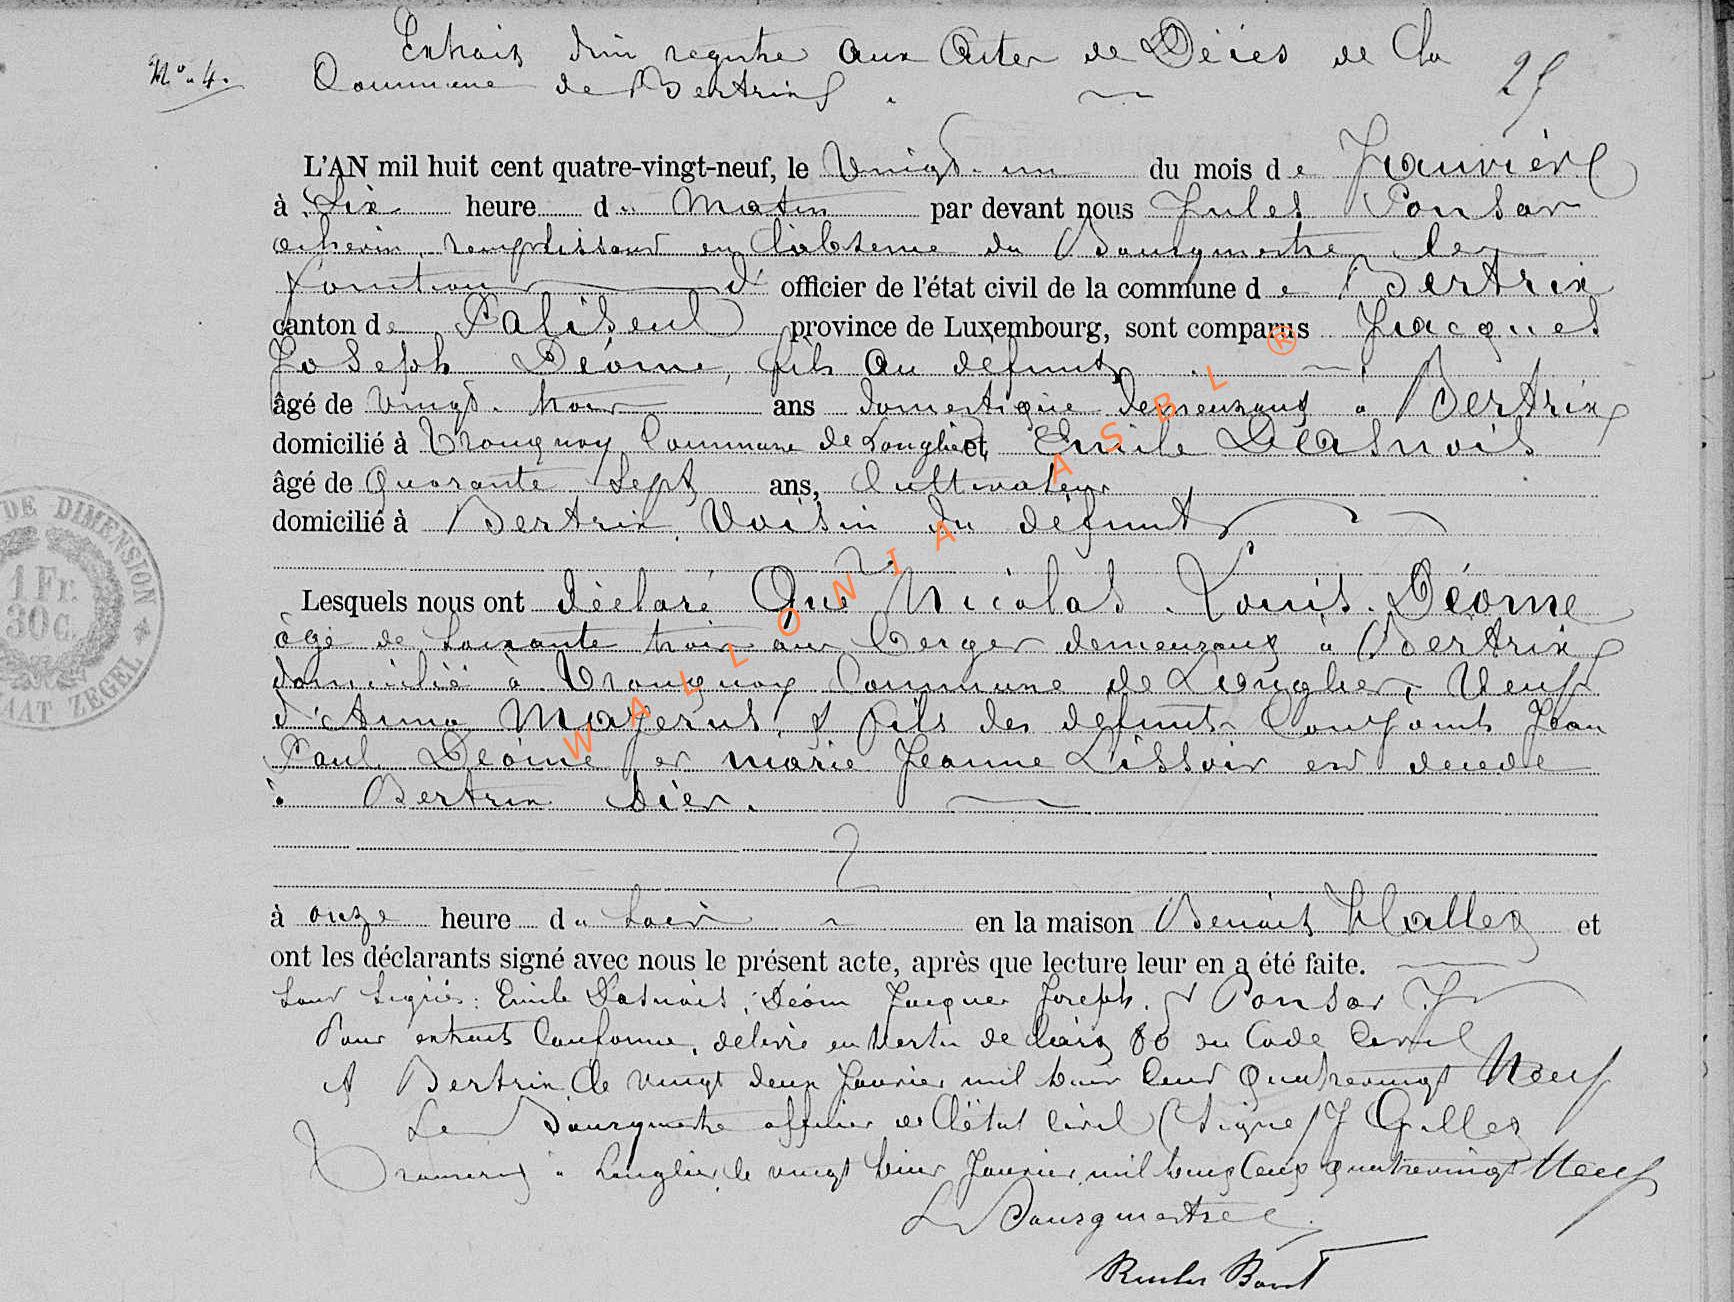 Extrait d'un registre aux Actes de Décès de la
N° 4. Commune de Bertrix. 25
L'AN mil huit cent quatre-vingt-neuf, le Vingt-un du mois de Janvier
à Six heure du Matin par devant nous Jules Ponsar
échevin, remplissant en l'absence du Bourgmestre les
fonctions d' officier de l'état civil de la commune de Bertrix
canton de Paliseul province de Luxembourg, sont comparus Jacques
Joseph Déome, fils au défunt
âgé de Vingt-trois ans domestique demeurant à Bertrix
domicilié à Tronquoy Commune de Longlier et Emile Dasnois
âgé de Quarante Sept ans, Cultivateur
domicilié à Bertrix Voisin du défunt
Lesquels nous ont déclaré Que Nicolas Louis Déome
âgé de Soixante trois ans Berger demeurant à Bertrix
domicilié à Tronquoy Commune de Longlier, Veuf
d'Anna Majerus, et fils des défunts Conjoints Jean
Paul Déome et marie Jeanne Lissoir est décédé
à Bertrix hier.
à onze heure du Soir en la maison Benoit Hallez et
ont les déclarants signé avec nous le présent acte, après que lecture leur en a été faite.
Sont signés: Emile Dasnois, Déom Jacques Joseph, et Ponsar J
Pour extrait Conforme, délivré en Vertu de l'art 80 du Code Civil
A Bertrix le vingt deux Janvier mil huit Cent Quatrevingt Neuf
Le Bourgmestre officier de l'état Civil (Signé) J Gillez
Transcrit à Longlier le vingt huit Janvier mil huit Cent quatrevingt Neuf
Le Bourgmestre
DE DIMENSION
1 Fr.
30 C.
ZEGEL
WALLONIA ASBL ®